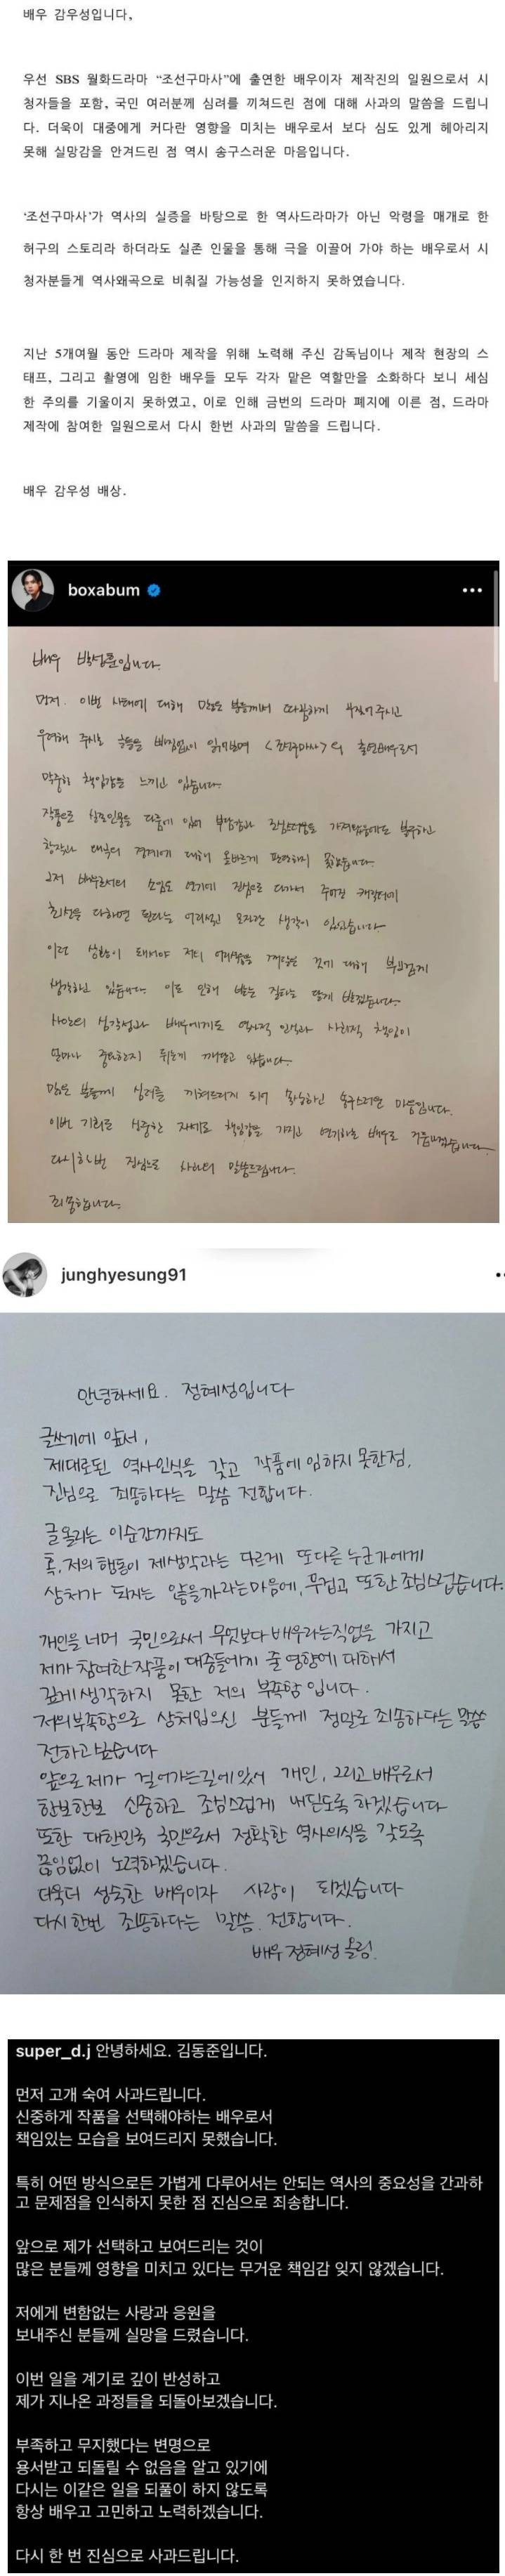 배우 감우성입니다,
우선 SBS 월화드라마 “조선구마사”에 출연한 배우이자 제작진의 일원으로서 시
청자들을 포함, 국민 여러분께 심려를 끼쳐드린 점에 대해 사과의 말씀을 드립니
다. 더욱이 대중에게 커다란 영향을 미치는 배우로서 보다 심도 있게 헤아리지
못해 실망감을 안겨드린 점 역시 송구스러운 마음입니다.
‘조선구마사’가 역사의 실증을 바탕으로 한 역사드라마가 아닌 악령을 매개로 한
허구의 스토리라 하더라도 실존 인물을 통해 극을 이끌어 가야 하는 배우로서 시
청자분들게 역사왜곡으로 비춰질 가능성을 인지하지 못하였습니다.
지난 5개여월 동안 드라마 제작을 위해 노력해 주신 감독님이나 제작 현장의 스
태프, 그리고 촬영에 임한 배우들 모두 각자 맡은 역할만을 소화하다 보니 세심
한 주의를 기울이지 못하였고, 이로 인해 금번의 드라마 폐지에 이른 점, 드라마
제작에 참여한 일원으로서 다시 한번 사과의 말씀을 드립니다.
배우 감우성 배상.
boxabum
배우 박성훈입니다.
먼저. 이번 사태에 대해 많은 분들께서 따끔하게 꾸짖어 주시고
우려해 주시는 글들을 빠짐없이 읽어보며 <조선구마사>의 출연배우로서
막중한 책임감을 느끼고 있습니다.
작품으로 실존인물을 다룸에 있어 부담감과 조심스러움을 가져왔음에도 불구하고
창작과 왜곡의 경계에 대해 올바르게 판단하지 못했습니다.
그저 배우로서의 소임은 연기에 진심으로 다가서 주어진 캐릭터에
최선을 다하면 된다는 어리석고 모자란 생각이 있었습니다.
이런 상황이 돼서야 저의 어리석음을 깨달은 것에 대해 부끄럽게
생각하고 있습니다. 이로 인해 받는 질타는 달게 받겠습니다.
사안의 심각성과 배우에게도 역사적 인식과 사회적 책임이
얼마나 중요한지 뒤늦게 깨닫고 있습니다.
많은 분들께 심려를 끼쳐드리게 되어 죄송하고 송구스러운 마음입니다.
이번 기회로 신중한 자세로 책임감을 가지고 연기하는 배우로 거듭나겠습니다.
다시 한번 진심으로 사과의 말씀드립니다.
죄송합니다.
junghyesung91
안녕하세요. 정혜성입니다
글쓰기에 앞서,
제대로된 역사인식을 갖고 작품에 임하지 못한점,
진심으로 죄송하다는 말씀 전합니다.
글올리는 이순간까지도
혹, 저의 행동이 제생각과는 다르게 또다른 누군가에게
상처가 되지는 않을까라는마음에, 무겁고 또한 조심스럽습니다.
개인을 너머 국민으로써 무엇보다 배우라는직업을 가지고
제가 참여한 작품이 대중들에게 줄 영향에 대해서
깊게생각하지 못한 저의 부족함 입니다.
저의부족함으로 상처입으신 분들께 정말로 죄송하다는 말씀
전하고 싶습니다
앞으로 제가 걸어가는길에있어 개인, 그리고 배우로서
한보한보 신중하고 조심스럽게 내딛도록 하겠습니다
또한 대한민국 국민으로서 정확한 역사의식을 갖도록
끊임없이 노력하겠습니다.
더욱더 성숙한 배우이자 사람이 되겠습니다
다시한번 죄송하다는 말씀 전합니다.
배우 정혜성 올림.
super_d.j 안녕하세요. 김동준입니다.
먼저 고개 숙여 사과드립니다.
신중하게 작품을 선택해야하는 배우로서
책임있는 모습을 보여드리지 못했습니다.
특히 어떤 방식으로든 가볍게 다루어서는 안되는 역사의 중요성을 간과하
고 문제점을 인식하지 못한 점 진심으로 죄송합니다.
앞으로 제가 선택하고 보여드리는 것이
많은 분들께 영향을 미치고 있다는 무거운 책임감 잊지 않겠습니다.
저에게 변함없는 사랑과 응원을
보내주신 분들께 실망을 드렸습니다.
이번 일을 계기로 깊이 반성하고
제가 지나온 과정들을 되돌아보겠습니다.
부족하고 무지했다는 변명으로
용서받고 되돌릴 수 없음을 알고 있기에
다시는 이같은 일을 되풀이 하지 않도록
항상 배우고 고민하고 노력하겠습니다.
다시 한 번 진심으로 사과드립니다.